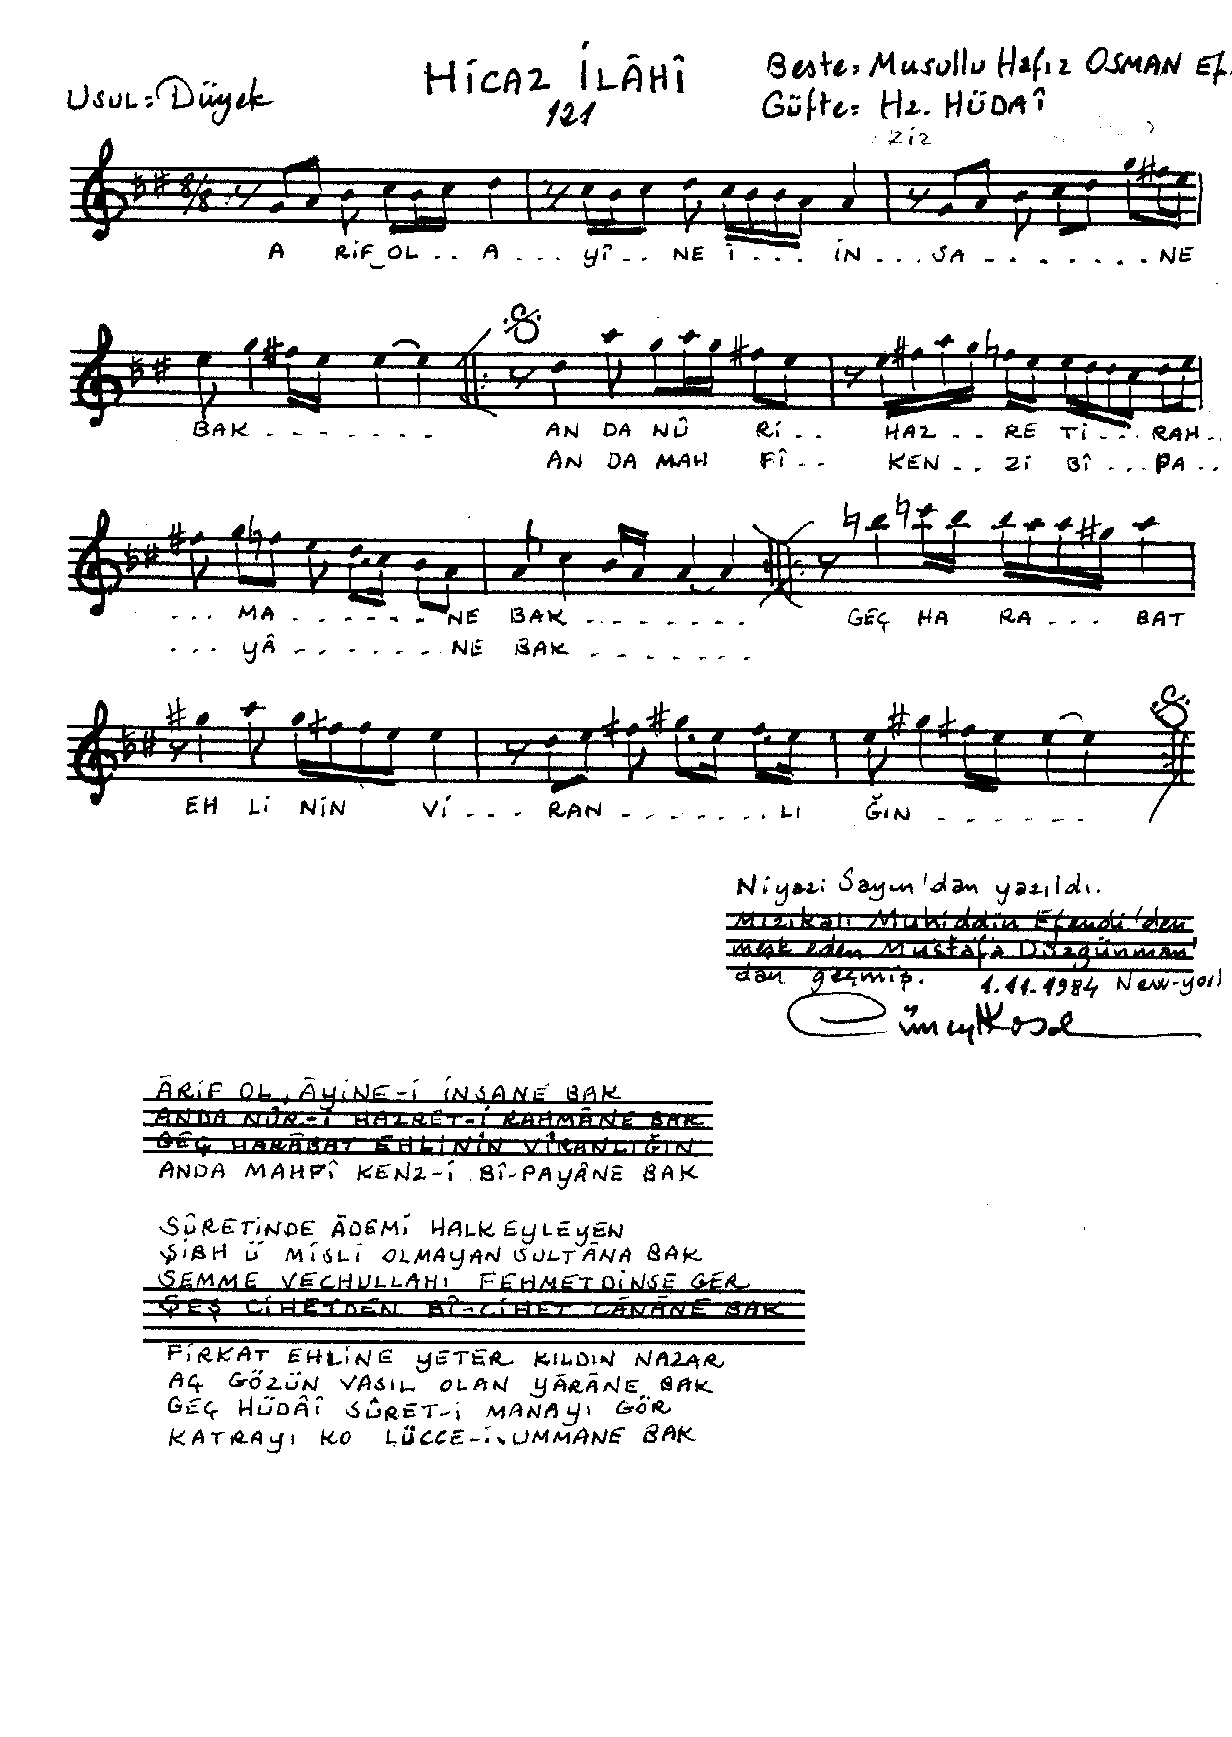 HİCAZ İLÂHÎ
121
Usul: Düyek
Beste: Musullu Hafız OSMAN Ef.
Güfte: Hz. HÜDAÎ
ziz
8/8
A RİF_OL . . A . . . Yİ . . NE İ . . . İN . . . SA . . . . . . . . NE
BAK . . . . . . . AN DA NÛ Rİ . . HAZ . . RE Tİ . . . RAH . .
AN DA MAH FÎ . . KEN . . Zİ BÎ . . . PA . .
. . . MA . . . . . . . NE BAK . . . . . . . . GEÇ HA RA . . . BAT
. . . YÂ . . . . . . . NE BAK . . . . . . . .
EH Lİ NİN Vİ . . . . RAN . . . . . . . . LI ĞIN . . . . . .
Niyazi Sayın'dan yazıldı.
Mızıkalı Muhiddin Efendi'den
meşk eden Mustafa Düzgünman'
dan geçmiş. 1.11.1984 New-york
Cüneyt Kosal
ÂRİF OL, ÂYİNE-İ İNSANE BAK
ANDA NÛR-İ HAZRET-İ RAHMÂNE BAK
GEÇ HARÂBAT EHLİNİN VİRANLIĞIN
ANDA MAHFÎ KENZ-İ BÎ-PAYÂNE BAK
SÛRETİNDE ÂDEMİ HALK EYLEYEN
ŞİBH Ü MİSLİ OLMAYAN SULTÂNA BAK
SEMME VECHULLAHI FEHMETDİNSE GER
ŞEŞ CİHETDEN BÎ-CİHET CÂNÂNE BAK
FİRKAT EHLİNE YETER KILDIN NAZAR
AÇ GÖZÜN VASIL OLAN YÂRÂNE BAK
GEÇ HÜDÂÎ SÛRET-İ MANAYI GÖR
KATRAYI KO LÜCCE-İ UMMANE BAK